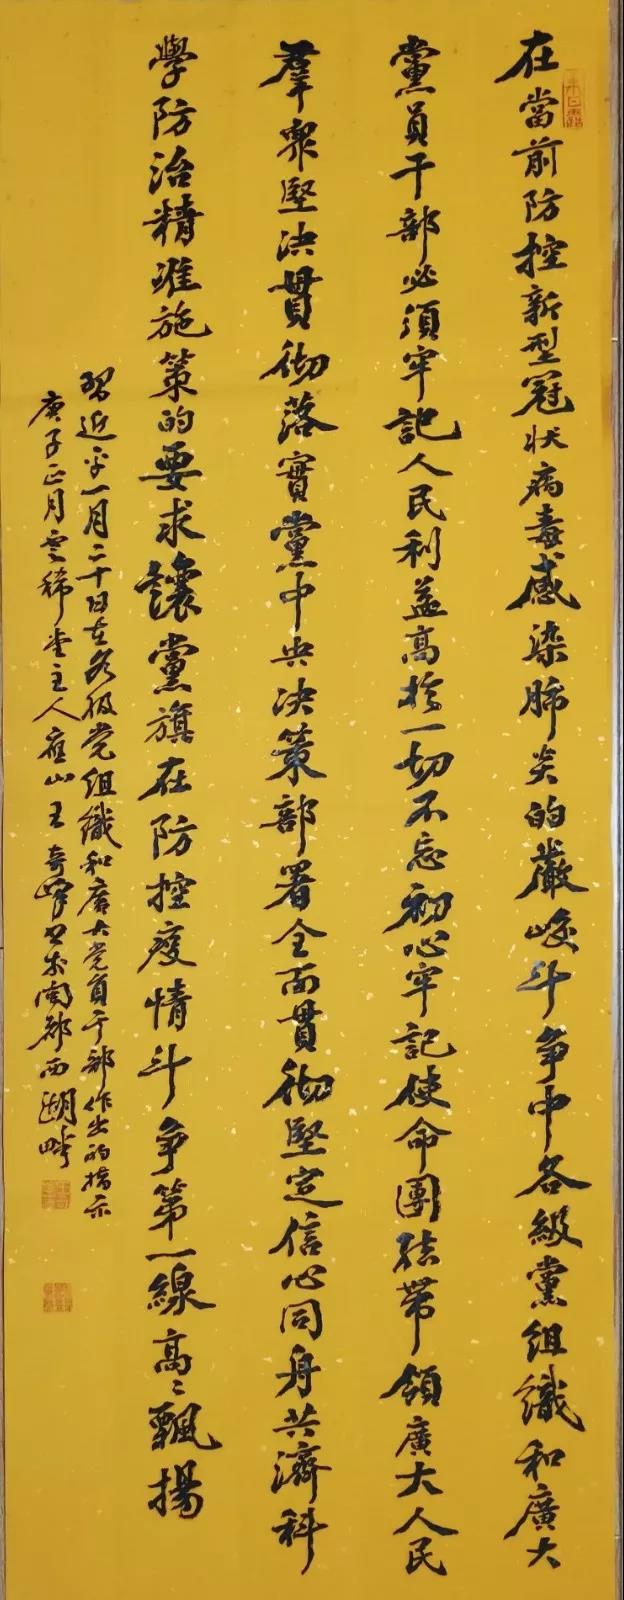 在當前防控新型冠状病毒感染肺炎的嚴峻斗争中各級黨組織和廣大
黨員干部必須牢記人民利益高於一切不忘初心牢記使命團結帶領廣大人民
羣衆堅決貫彻落實黨中央決策部署全面貫彻堅定信心同舟共濟科
學防治精准施策的要求讓黨旗在防控疫情斗争第一線高〻飄揚
習近平一月二十日在各级党组織和廣大党員干部作出的指示
庚子正月雲稀堂主人應山王奇峰书於閩都西湖畔